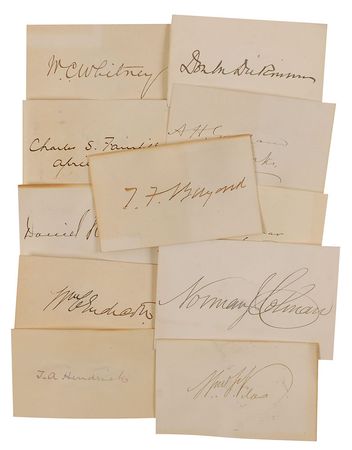 W. C. Whitney
Don M. Dickinson
Charles S. Fairchild
April
A H
T. F. Bayard
Daniel
Wm C Endicott
Norman J Colman
T. A. Hendricks
Wm F Vilas